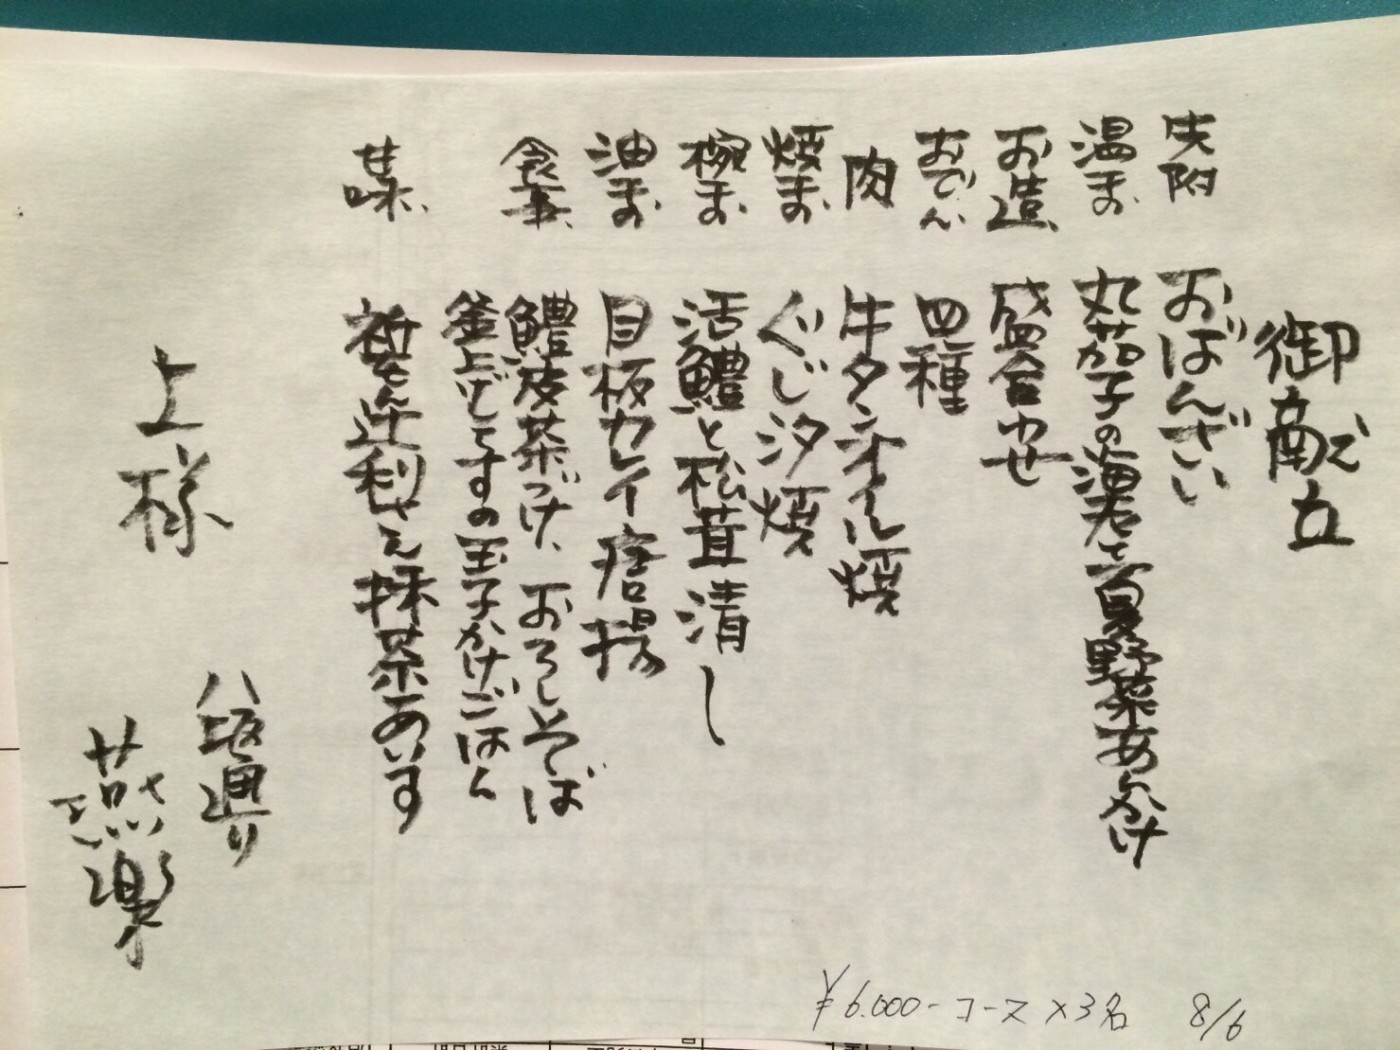 御献立
先附 おばんざい
温物 丸茄子の海老と夏野菜あんかけ
お造り 盛合わせ
おでん 四種
肉 牛タンオイル焼
焼物 ぐじ汐焼
椀物 活鱧と松茸清し
油物 目板カレイ唐揚
食事 鱧皮茶づけ、おろしそば
釜上げしらすの玉子かけごはん
甘味 祇をん辻利さん抹茶あいす
上様
八坂通り
燕楽
¥6.000-コース×3名 8/6